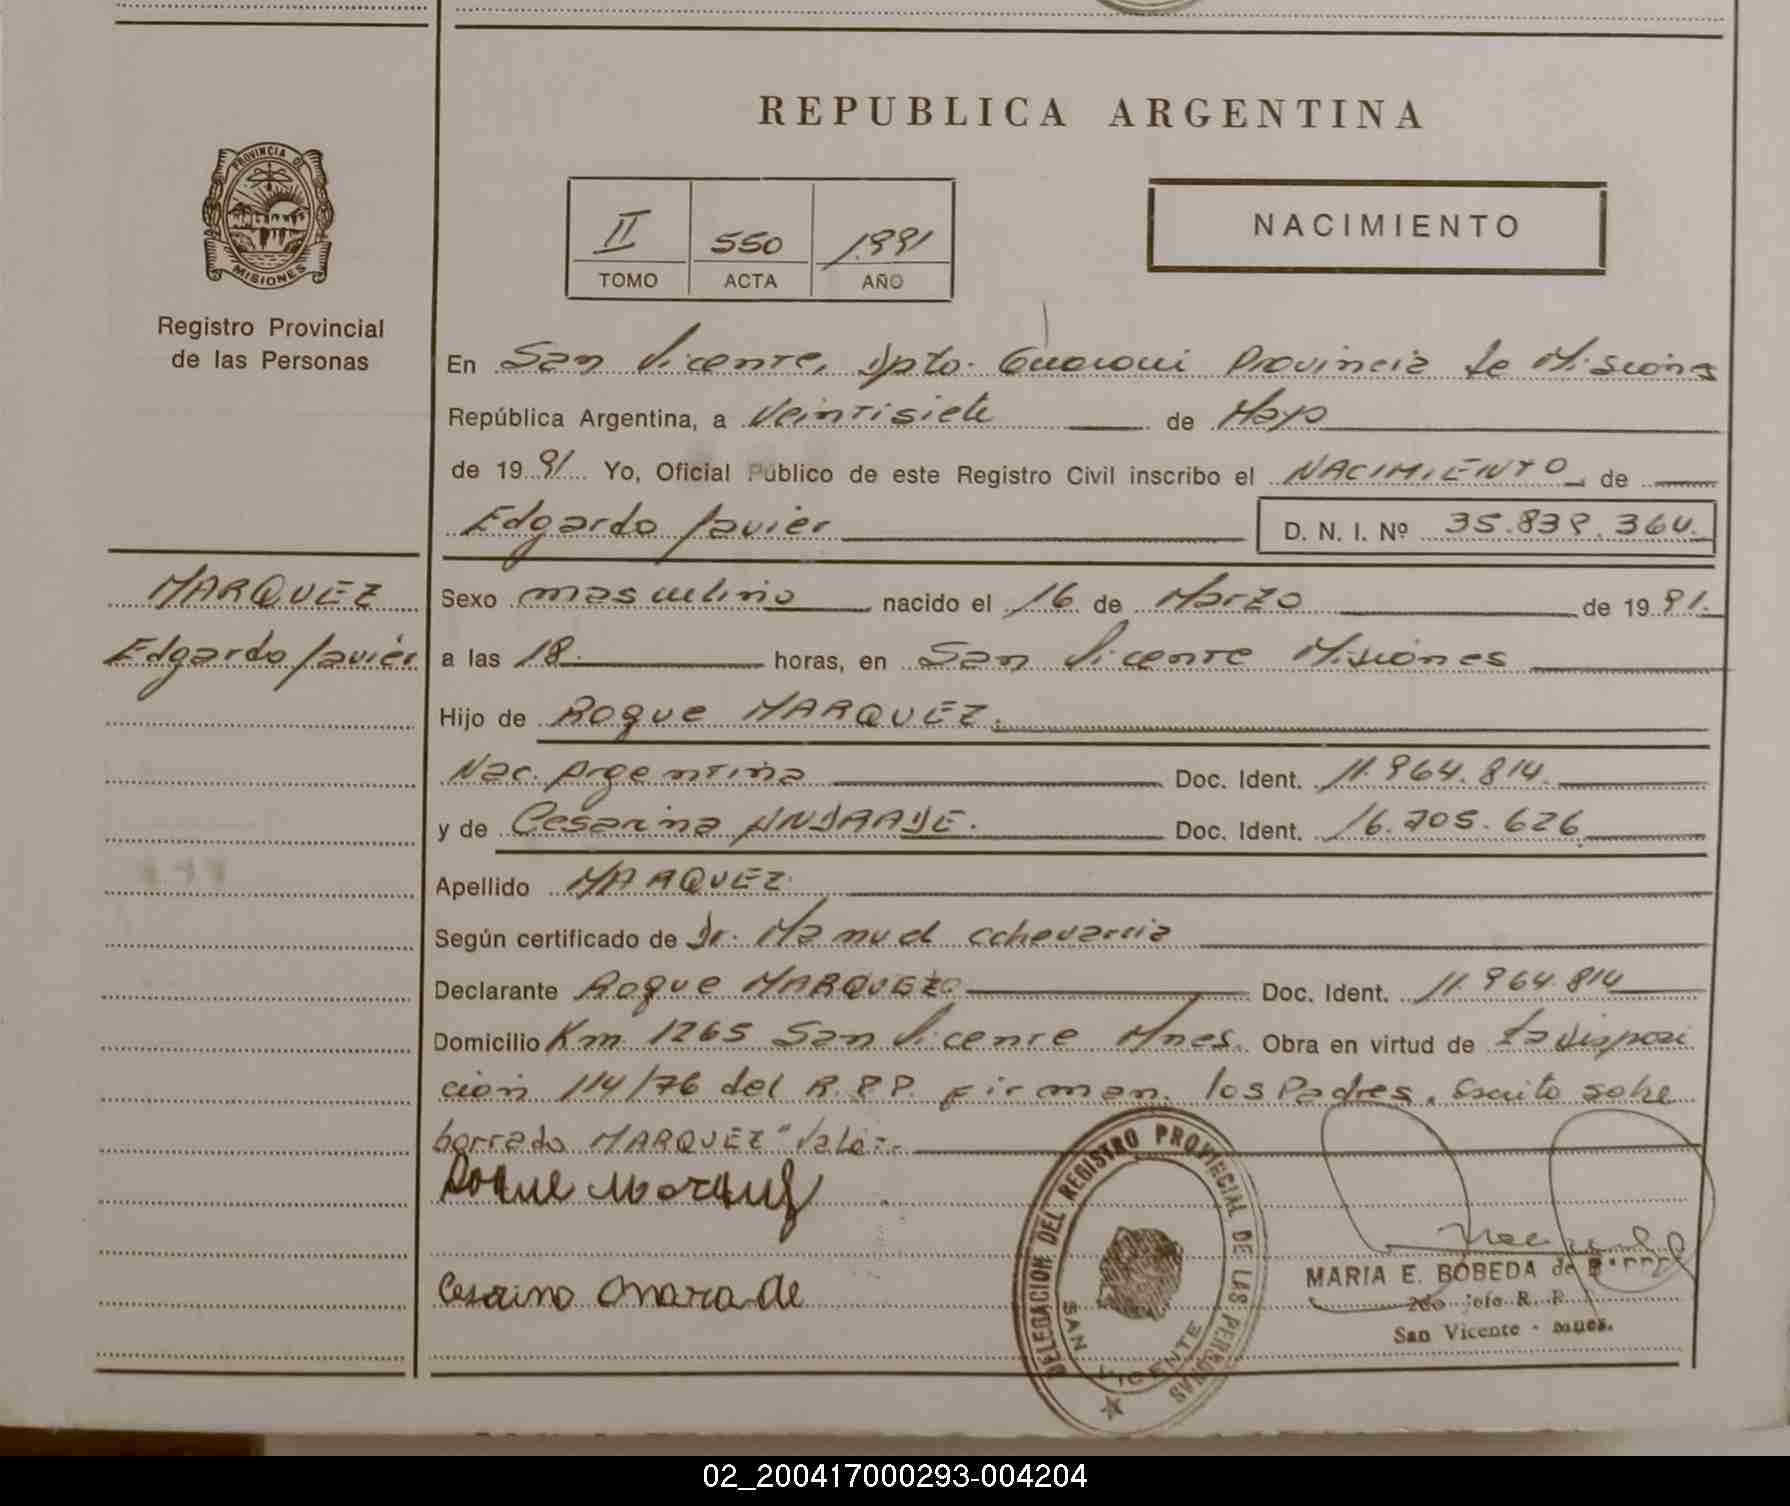 REPUBLICA ARGENTINA
PROVINCIA DE
MISIONES
Registro Provincial
de las Personas
II 550 1991
TOMO ACTA AÑO
NACIMIENTO
En San Vicente, Dpto. Guarani Provincia de Misiones
República Argentina, a Veintisiete de Mayo
de 1991 Yo, Oficial Público de este Registro Civil inscribo el NACIMIENTO de
Edgardo Javier D. N. I. Nº 35.839.364.
MARQUEZ
Edgardo Javier
Sexo masculino nacido el 16 de Marzo de 1991.
a las 18. horas, en San Vicente Misiones
Hijo de Roque MARQUEZ.
Nac. Argentina Doc. Ident. 11.964.814.
y de Cesarina ANDRADE. Doc. Ident. 16.705.626
Apellido MARQUEZ
Según certificado de Dr. Manuel Echevarria
Declarante Roque MARQUEZ Doc. Ident. 11.964.814
Domicilio Km 1265 San Vicente Mnes. Obra en virtud de La Disposi
cion 114/76 del R.P.P. Firman los Padres. Escrito sobre
borrado MARQUEZ" Vale.-
Roque Marquez
Cesarina Andrade
DELEGACION DEL REGISTRO PROVINCIAL DE LAS PERSONAS
SAN VICENTE
MARIA E. BOBEDA de
2do Jefe R. P.
San Vicente - Mnes.
02_200417000293-004204